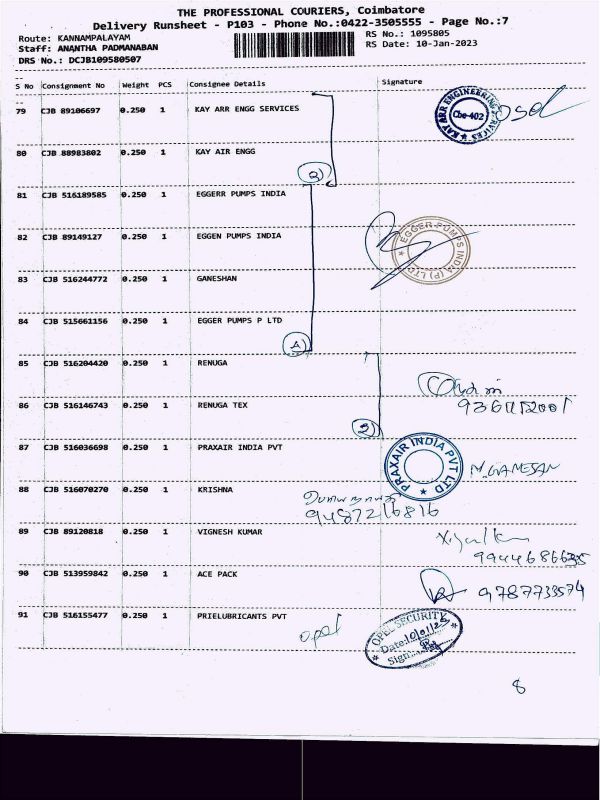 THE PROFESSIONAL COURIERS, Coimbatore
Delivery Runsheet - P103 - Phone No.:0422-3505555 - Page No.:7
Route: KANNAMPALAYAM
RS No.: 1095805
Staff: ANANTHA PADMANABAN
RS Date: 10-Jan-2023
DRS No.: DCJB109580507
S No Consignment No Weight PCS Consignee Details Signature
79 CJB 89106697 0.250 1 KAY ARR ENGG SERVICES
KAY ARR ENGINEERING SERVICES
Cbe-402
80 CJB 88983802 0.250 1 KAY AIR ENGG
2
81 CJB 516189585 0.250 1 EGGERR PUMPS INDIA
82 CJB 89149127 0.250 1 EGGEN PUMPS INDIA
EGGER PUMPS INDIA (P) LTD
83 CJB 516244772 0.250 1 GANESHAN
84 CJB 515661156 0.250 1 EGGER PUMPS P LTD
85 CJB 516204420 0.250 1 RENUGA
86 CJB 516146743 0.250 1 RENUGA TEX
2
87 CJB 516036698 0.250 1 PRAXAIR INDIA PVT
PRAXAIR INDIA PVT LTD
M.GANESAN
88 CJB 516070270 0.250 1 KRISHNA
9487216816
89 CJB 89120818 0.250 1 VIGNESH KUMAR
90 CJB 513959842 0.250 1 ACE PACK
9787733574
91 CJB 516155477 0.250 1 PRIELUBRICANTS PVT
opel
OPEL SECURITY
Date:
Sign:
8